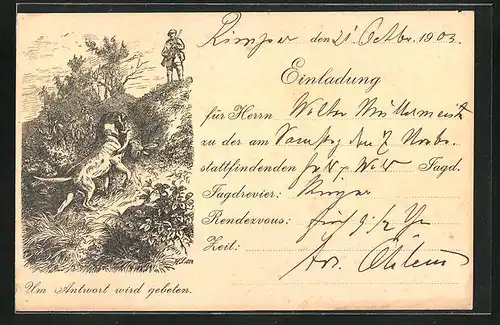 Rimpar den 21. Octbr. 1903.
Einladung
für Herrn Walter Müllermeister
zu der am Samstag den 7. Novbr.
stattfindenden Jagd.
Jagdrevier: Rimpar
Rendezvous: früh 9 1/2 Uhr
Zeit:
Um Antwort wird gebeten.